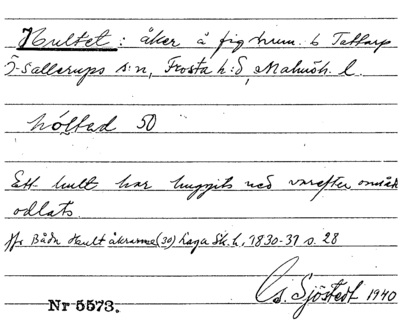 Hultet: åker å fig. num. 6 Tattarp
Ö. Sallerups s:n, Frosta h:d, Malmöh. l.
50
Ett hult har huggits ned varefter området
odlats.
Jfr Hultåkrarna (30) Laga Sk. h, 1830-31 s. 28
G. Sjöstedt 1940
Nr 5573.